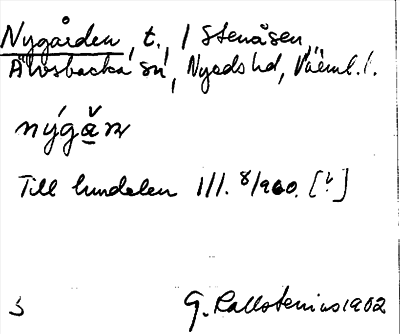 Nygården, t., / Stenåsen,
Älvsbacka sn, Nyeds hd, Värml. l.
nýgǎ̱ɳ
Till lundelen 1/1. 8/960. [?]
G. Rallstenius 1902